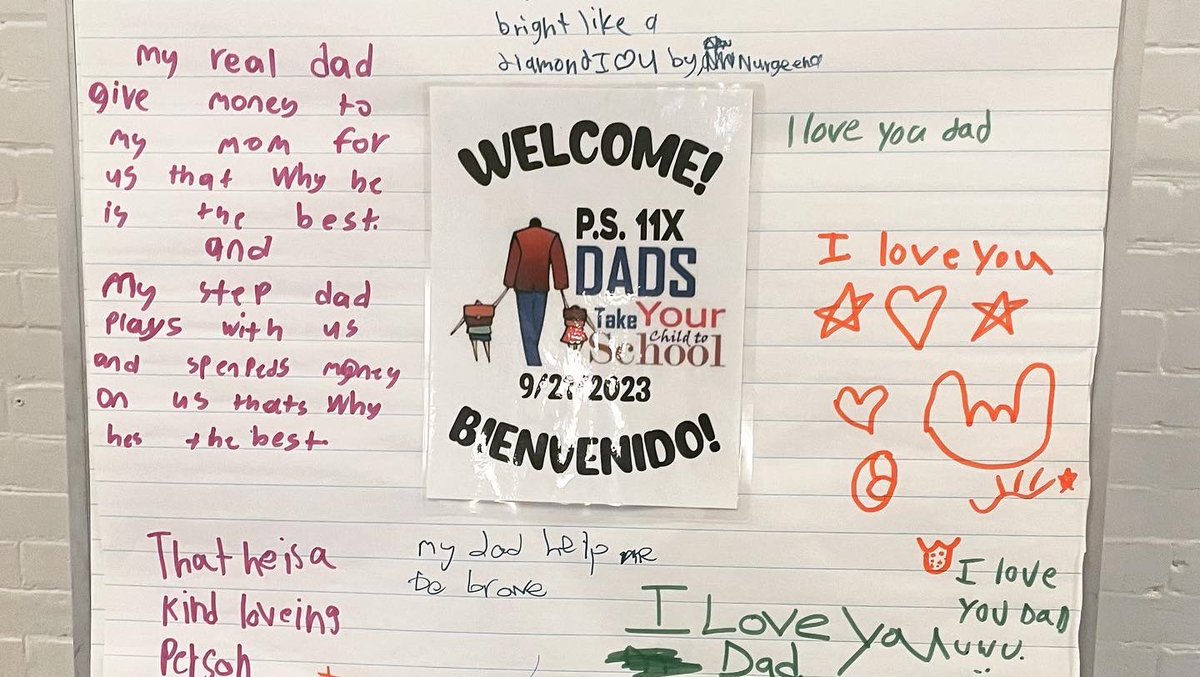 bright like a
diamond I ♡ U by Nurgeena
my real dad
give money to
my mom for
us that Why he
is the best.
and
My step dad
plays with us
and spenpeds money
on us thats Why
hes the best
WELCOME!
P.S. 11X
DADS
Take Your
Child to
School
9/27/2023
BIENVENIDO!
I love you dad
I love you
That he is a
kind loveing
Person
my dad help me
be brave
I Love You
Dad
I love
You Dad
uwu.